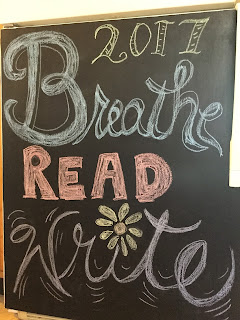 2017
Breathe
READ
Write